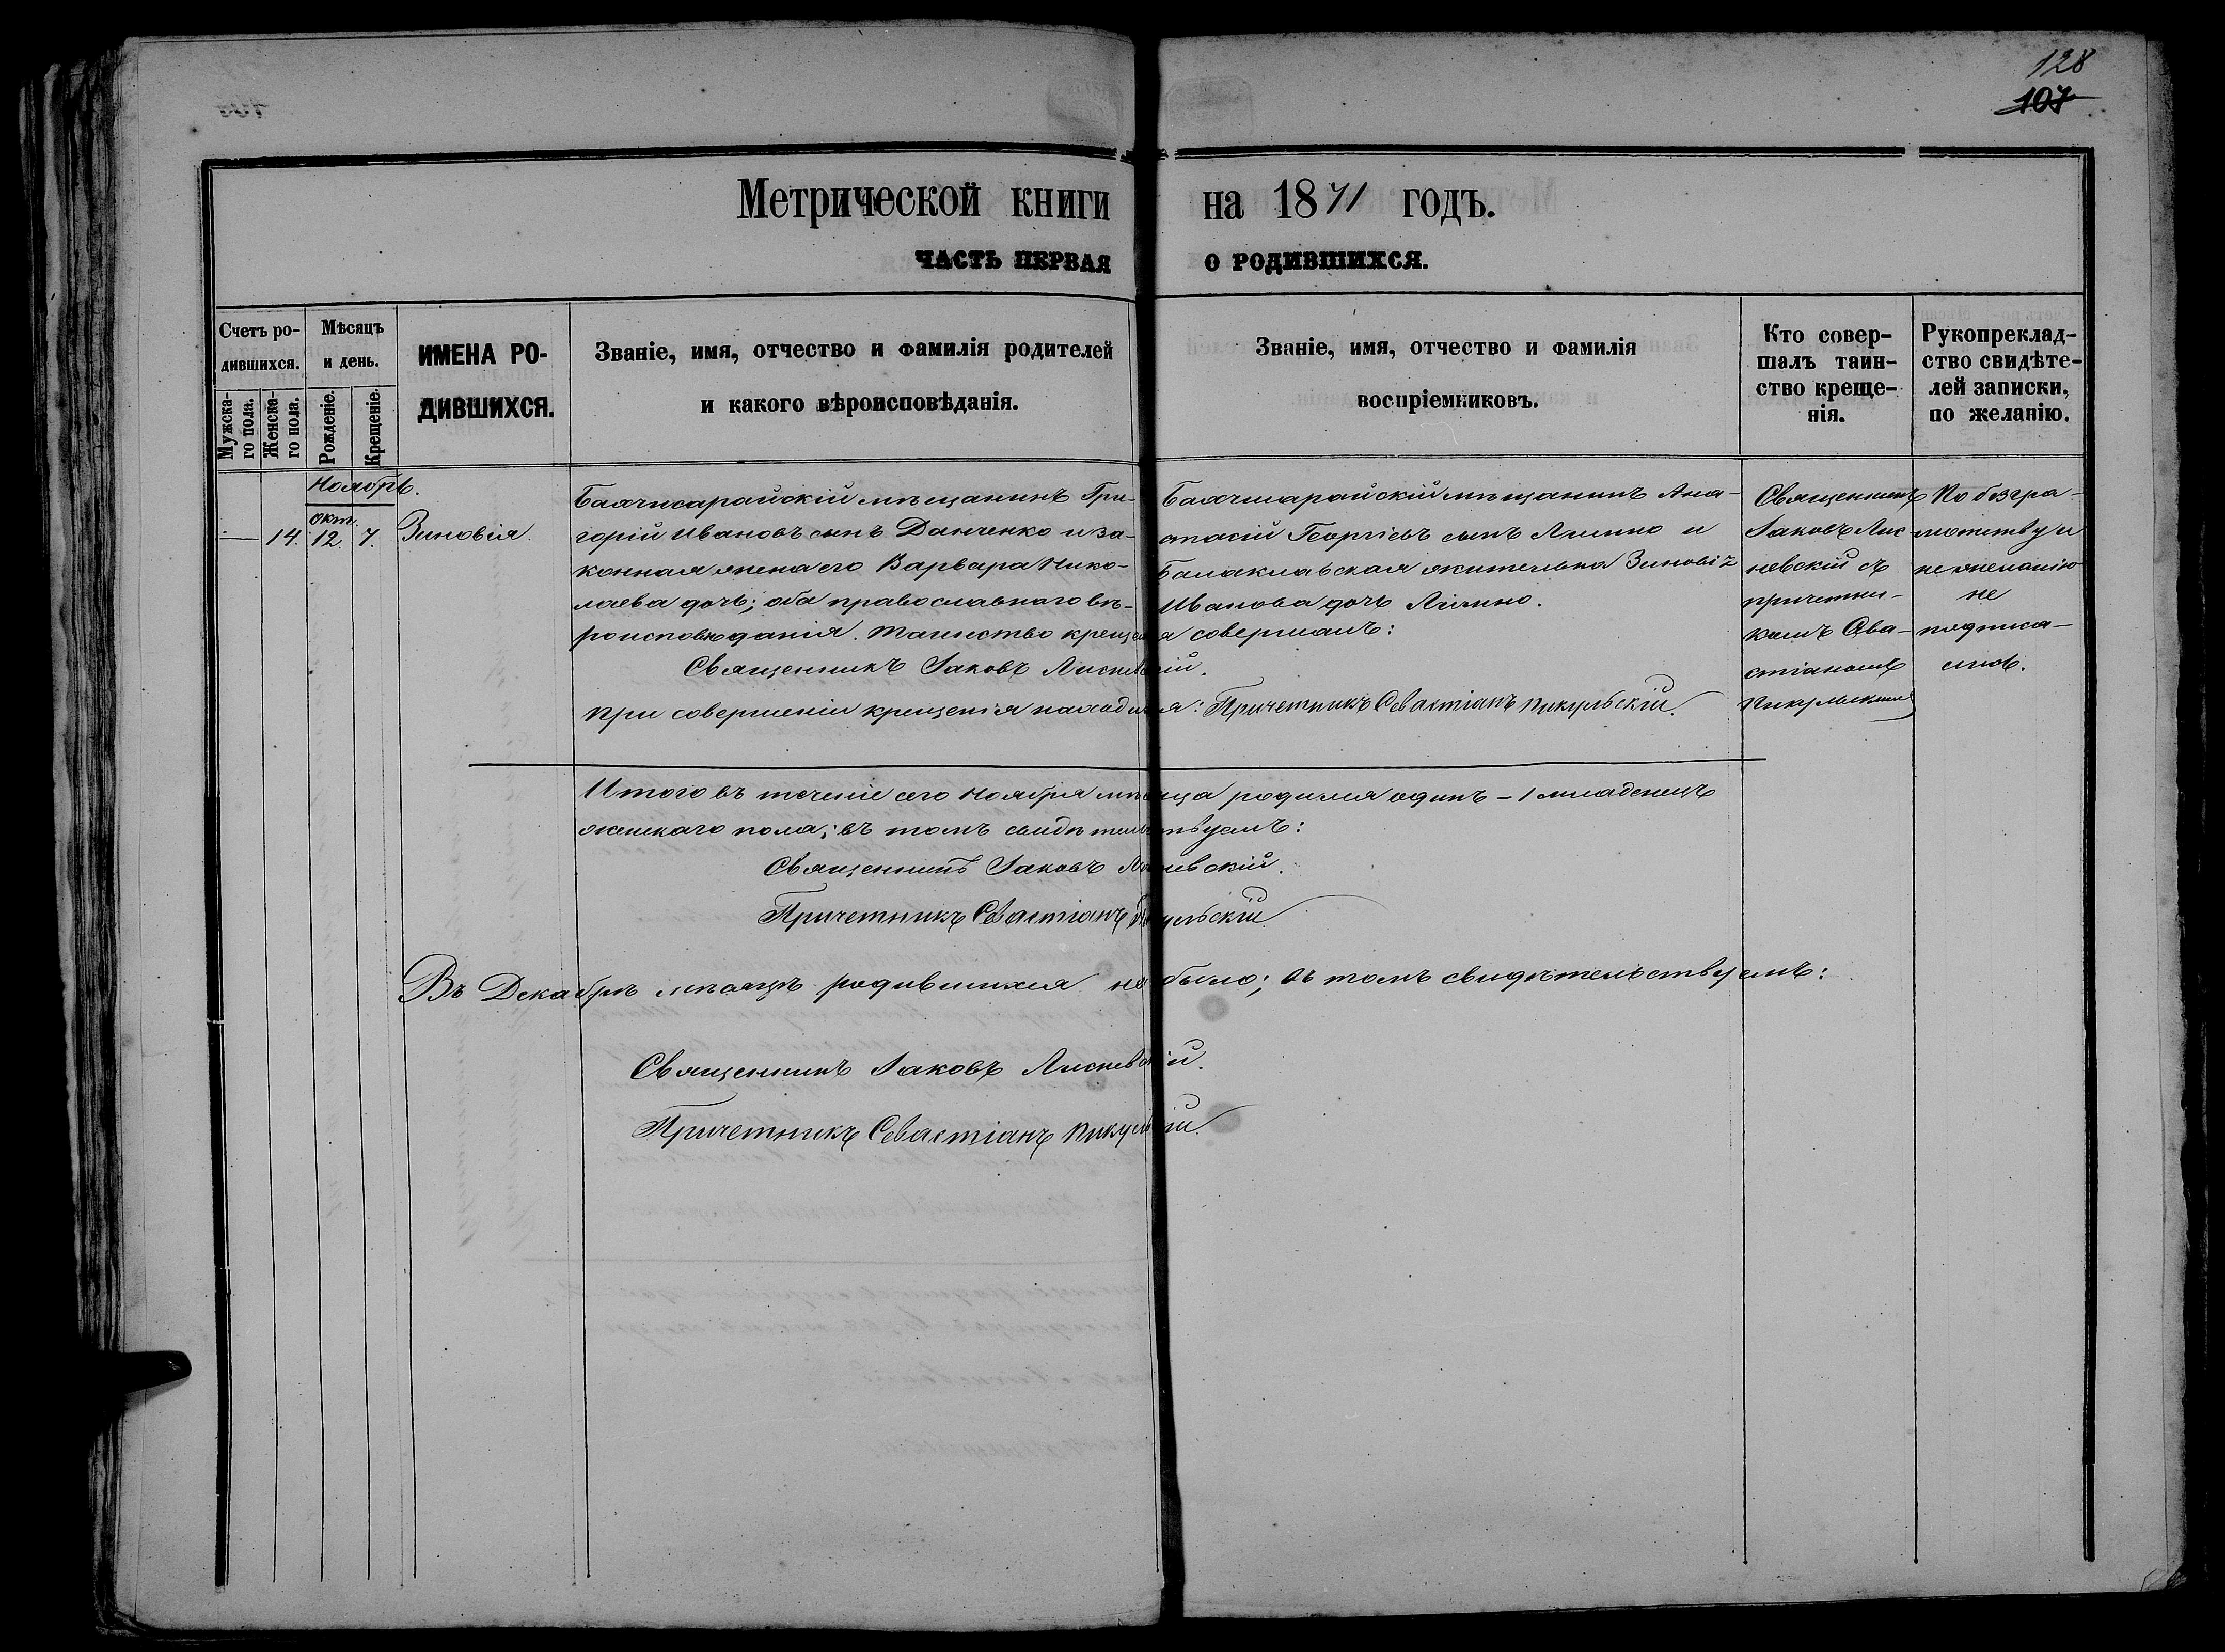 128
107
Метрической книги на 1871 годъ.
ЧАСТЬ ПЕРВАЯ О РОДИВШИХСЯ.
Счетъ ро-
дившихся.
Мужска-
го пола.
Женска-
го пола.
Мѣсяцъ
и день.
Рожденіе.
Крещеніе.
ИМЕНА РО-
ДИВШИХСЯ.
Званіе, имя, отчество и фамилія родителей
и какого вѣроисповѣданія.
Званіе, имя, отчество и фамилія
воспріемниковъ.
Кто совер-
шалъ таин-
ство креще-
нія.
Рукоприклад-
ство свидѣте-
лей записки,
по желанію.
Ноябрь.
окт.
— 14. 12. 7.
Зиновія.
Бахчисарайскій мѣщанинъ Гри-
горій Ивановъ сынъ Данченко и за-
конная жена его Варвара Нико-
лаева дочь; оба православнаго вѣ-
роисповѣданія. Таинство крещенія совершалъ:
Священникъ Іаковъ Лисневскій.
При совершеніи крещенія находился: Причетникъ Севастіанъ Пикульскій.
Бахчисарайскій мѣщанинъ Ана-
стасій Георгіевъ сынъ и
Балаклавская жительна Зиновія
Иванова дочь
Священникъ
Іаковъ Лис-
невскій съ
причетни-
комъ Сева-
стіаномъ
Пикульскимъ
По безгра-
мотству и
не желанію
не
подписа-
лись.
Итого въ теченіе сего Ноября мѣсяца родился одинъ — 1 младенецъ
женскаго пола; въ томъ свидѣтельствуемъ:
Священникъ Іаковъ Лисневскій.
Причетникъ Севастіанъ Пикульскій.
Въ Декабрѣ мѣсяцѣ родившихся не было; въ томъ свидѣтельствуемъ:
Священникъ Іаковъ Лисневскій.
Причетникъ Севастіанъ Пикульскій.